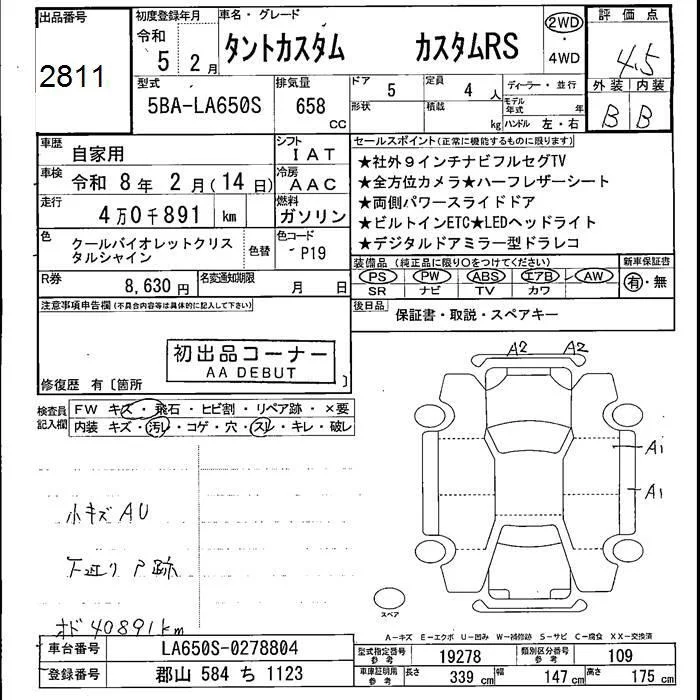 出品番号
2811
初度登録年月
令和
5 2月
車名・グレード
タントカスタム カスタムRS
2WD
・
4WD
評価点
4.5
外装 内装
B B
型式
5BA-LA650S
排気量
658
CC
ドア
5
定員
4 人
ディーラー・並行
形状
積載
kg
モデル年式 年
ハンドル 左・右
車歴
自家用
シフト
IAT
車検
令和 8年 2月(14日)
冷房
AAC
走行
4万0千891 km
燃料
ガソリン
色
クールバイオレットクリス
タルシャイン
色替
色コード
P19
R券
8,630円
名変通知期限
月 日
セールスポイント(正常に機能するものに限ります)
★社外9インチナビフルセグTV
★全方位カメラ★ハーフレザーシート
★両側パワースライドドア
★ビルトインETC★LEDヘッドライト
★デジタルドアミラー型ドラレコ
装備品 (純正品に限り○をつけてください)
PS PW ABS エアB AW
SR ナビ TV カワ
新車保証書
有・無
後日品
保証書・取説・スペアキー
注意事項申告欄(不具合内容等は具体的に記入して下さい)
初出品コーナー
AA DEBUT
修復歴 有〔箇所 〕
検査員
記入欄
FW キズ・飛石・ヒビ割・リペア跡・×要
内装 キズ・汚レ・コゲ・穴・スレ・キレ・破レ
A2 A2
A1
A1
小キズ AU
下廻り P跡
オド 40891km
スペア
A-キズ E-エクボ U-凹み W-補修跡 S-サビ C-腐食 XX-交換済
車台番号
LA650S-0278804
登録番号
郡山 584 ち 1123
型式指定番号
参考
19278
類別区分番号
参考
109
車庫証明用
参考
長さ 339 cm 幅 147 cm 高さ 175 cm